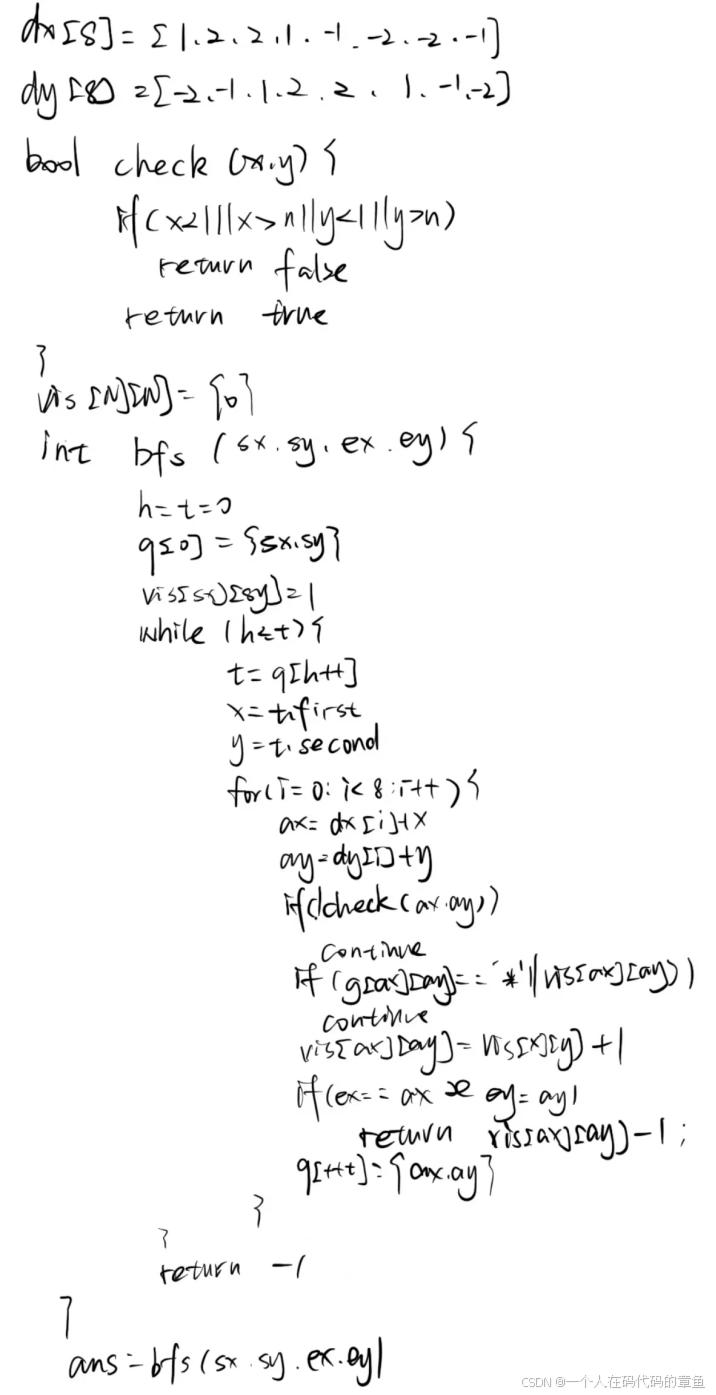 dx[8]=[1.2.2.1.-1.-2.-2.-1]
dy[8]=[-2.-1.1.2.2.1.-1.-2]
bool check(x.y){
if(x<1||x>n||y<1||y>n)
return false
return true
}
vis[N][N]={0}
int bfs(sx.sy.ex.ey){
h=t=0
q[0]={sx.sy}
vis[sx][sy]=1
while(h<=t){
t=q[h++]
x=t.first
y=t.second
for(i=0:i<8:i++){
ax=dx[i]+x
ay=dy[i]+y
if(!check(ax.ay))
continue
if(g[ax][ay]=='*'||vis[ax][ay])
continue
vis[ax][ay]=vis[x][y]+1
if(ex==ax && ey=ay)
return vis[ax][ay]-1;
q[++t]={ax.ay}
}
}
return -1
}
ans=bfs(sx.sy.ex.ey)
CSDN @一个人在码代码的章鱼